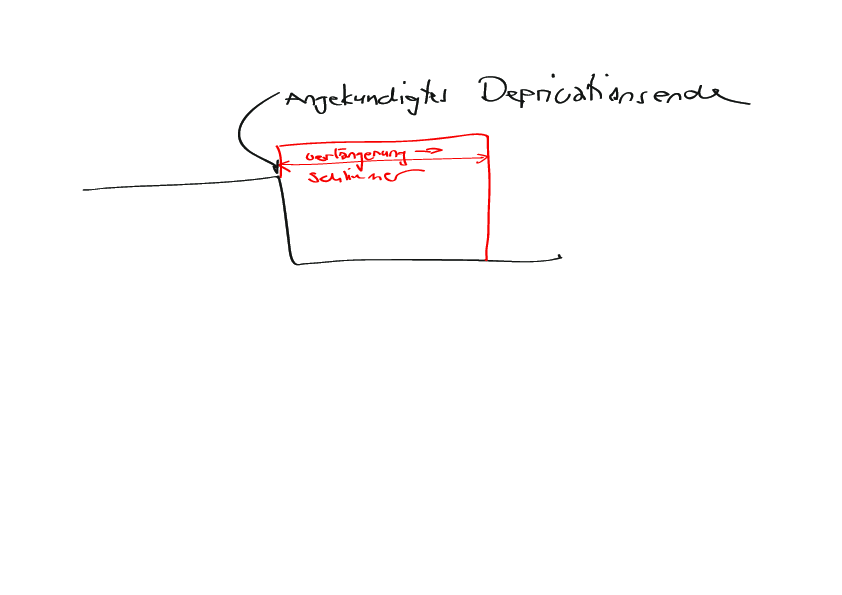 Angekündigtes Deprications­ende
verlängerung →
schlimmer